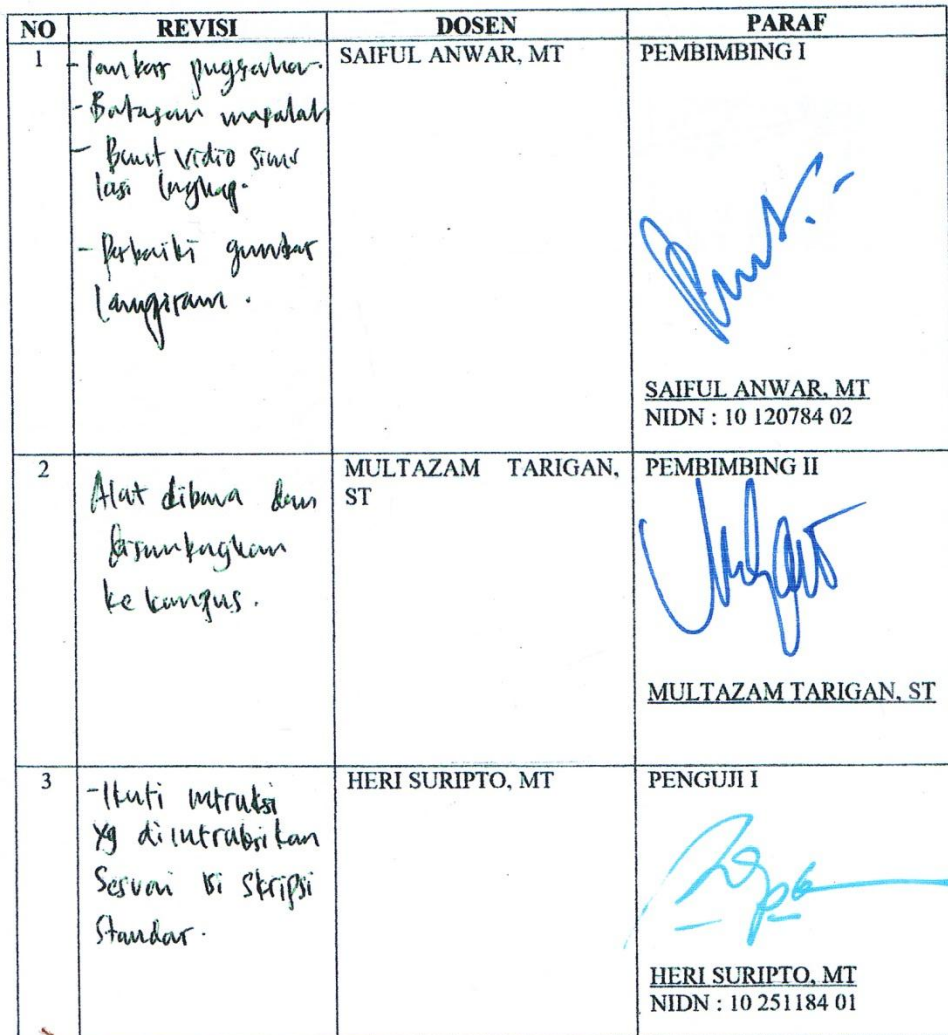 NO REVISI DOSEN PARAF
1
- pugesahan.
- Batasan masalah
- Buat vidio simu
lasi lengkap.
- Perbaiki gambar
SAIFUL ANWAR, MT
PEMBIMBING I
SAIFUL ANWAR, MT
NIDN : 10 120784 02
2
Alat dibawa dan
ke
MULTAZAM TARIGAN,
ST
PEMBIMBING II
MULTAZAM TARIGAN, ST
3
- Ikuti intruksi
yg diintruksikan
Sesuai isi skripsi
Standar.
HERI SURIPTO, MT
PENGUJI I
HERI SURIPTO, MT
NIDN : 10 251184 01